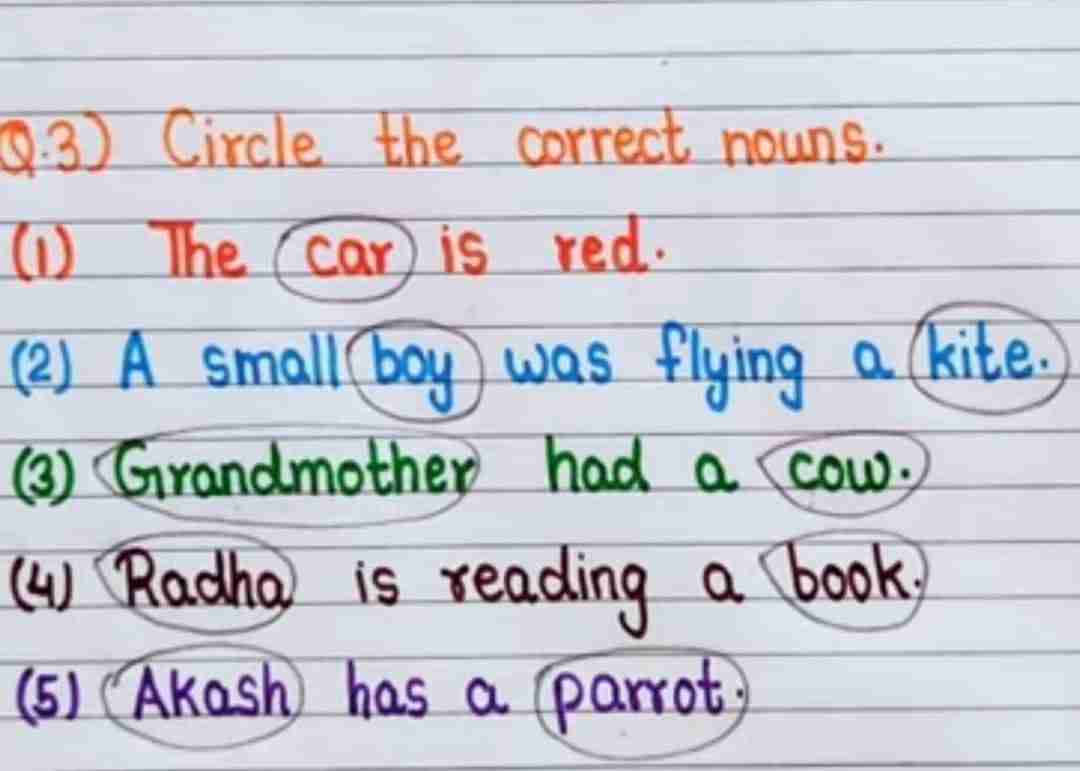 Q.3) Circle the correct nouns.
(1) The car is red.
(2) A small boy was flying a kite.
(3) Grandmother had a cow.
(4) Radha is reading a book.
(5) Akash has a parrot.